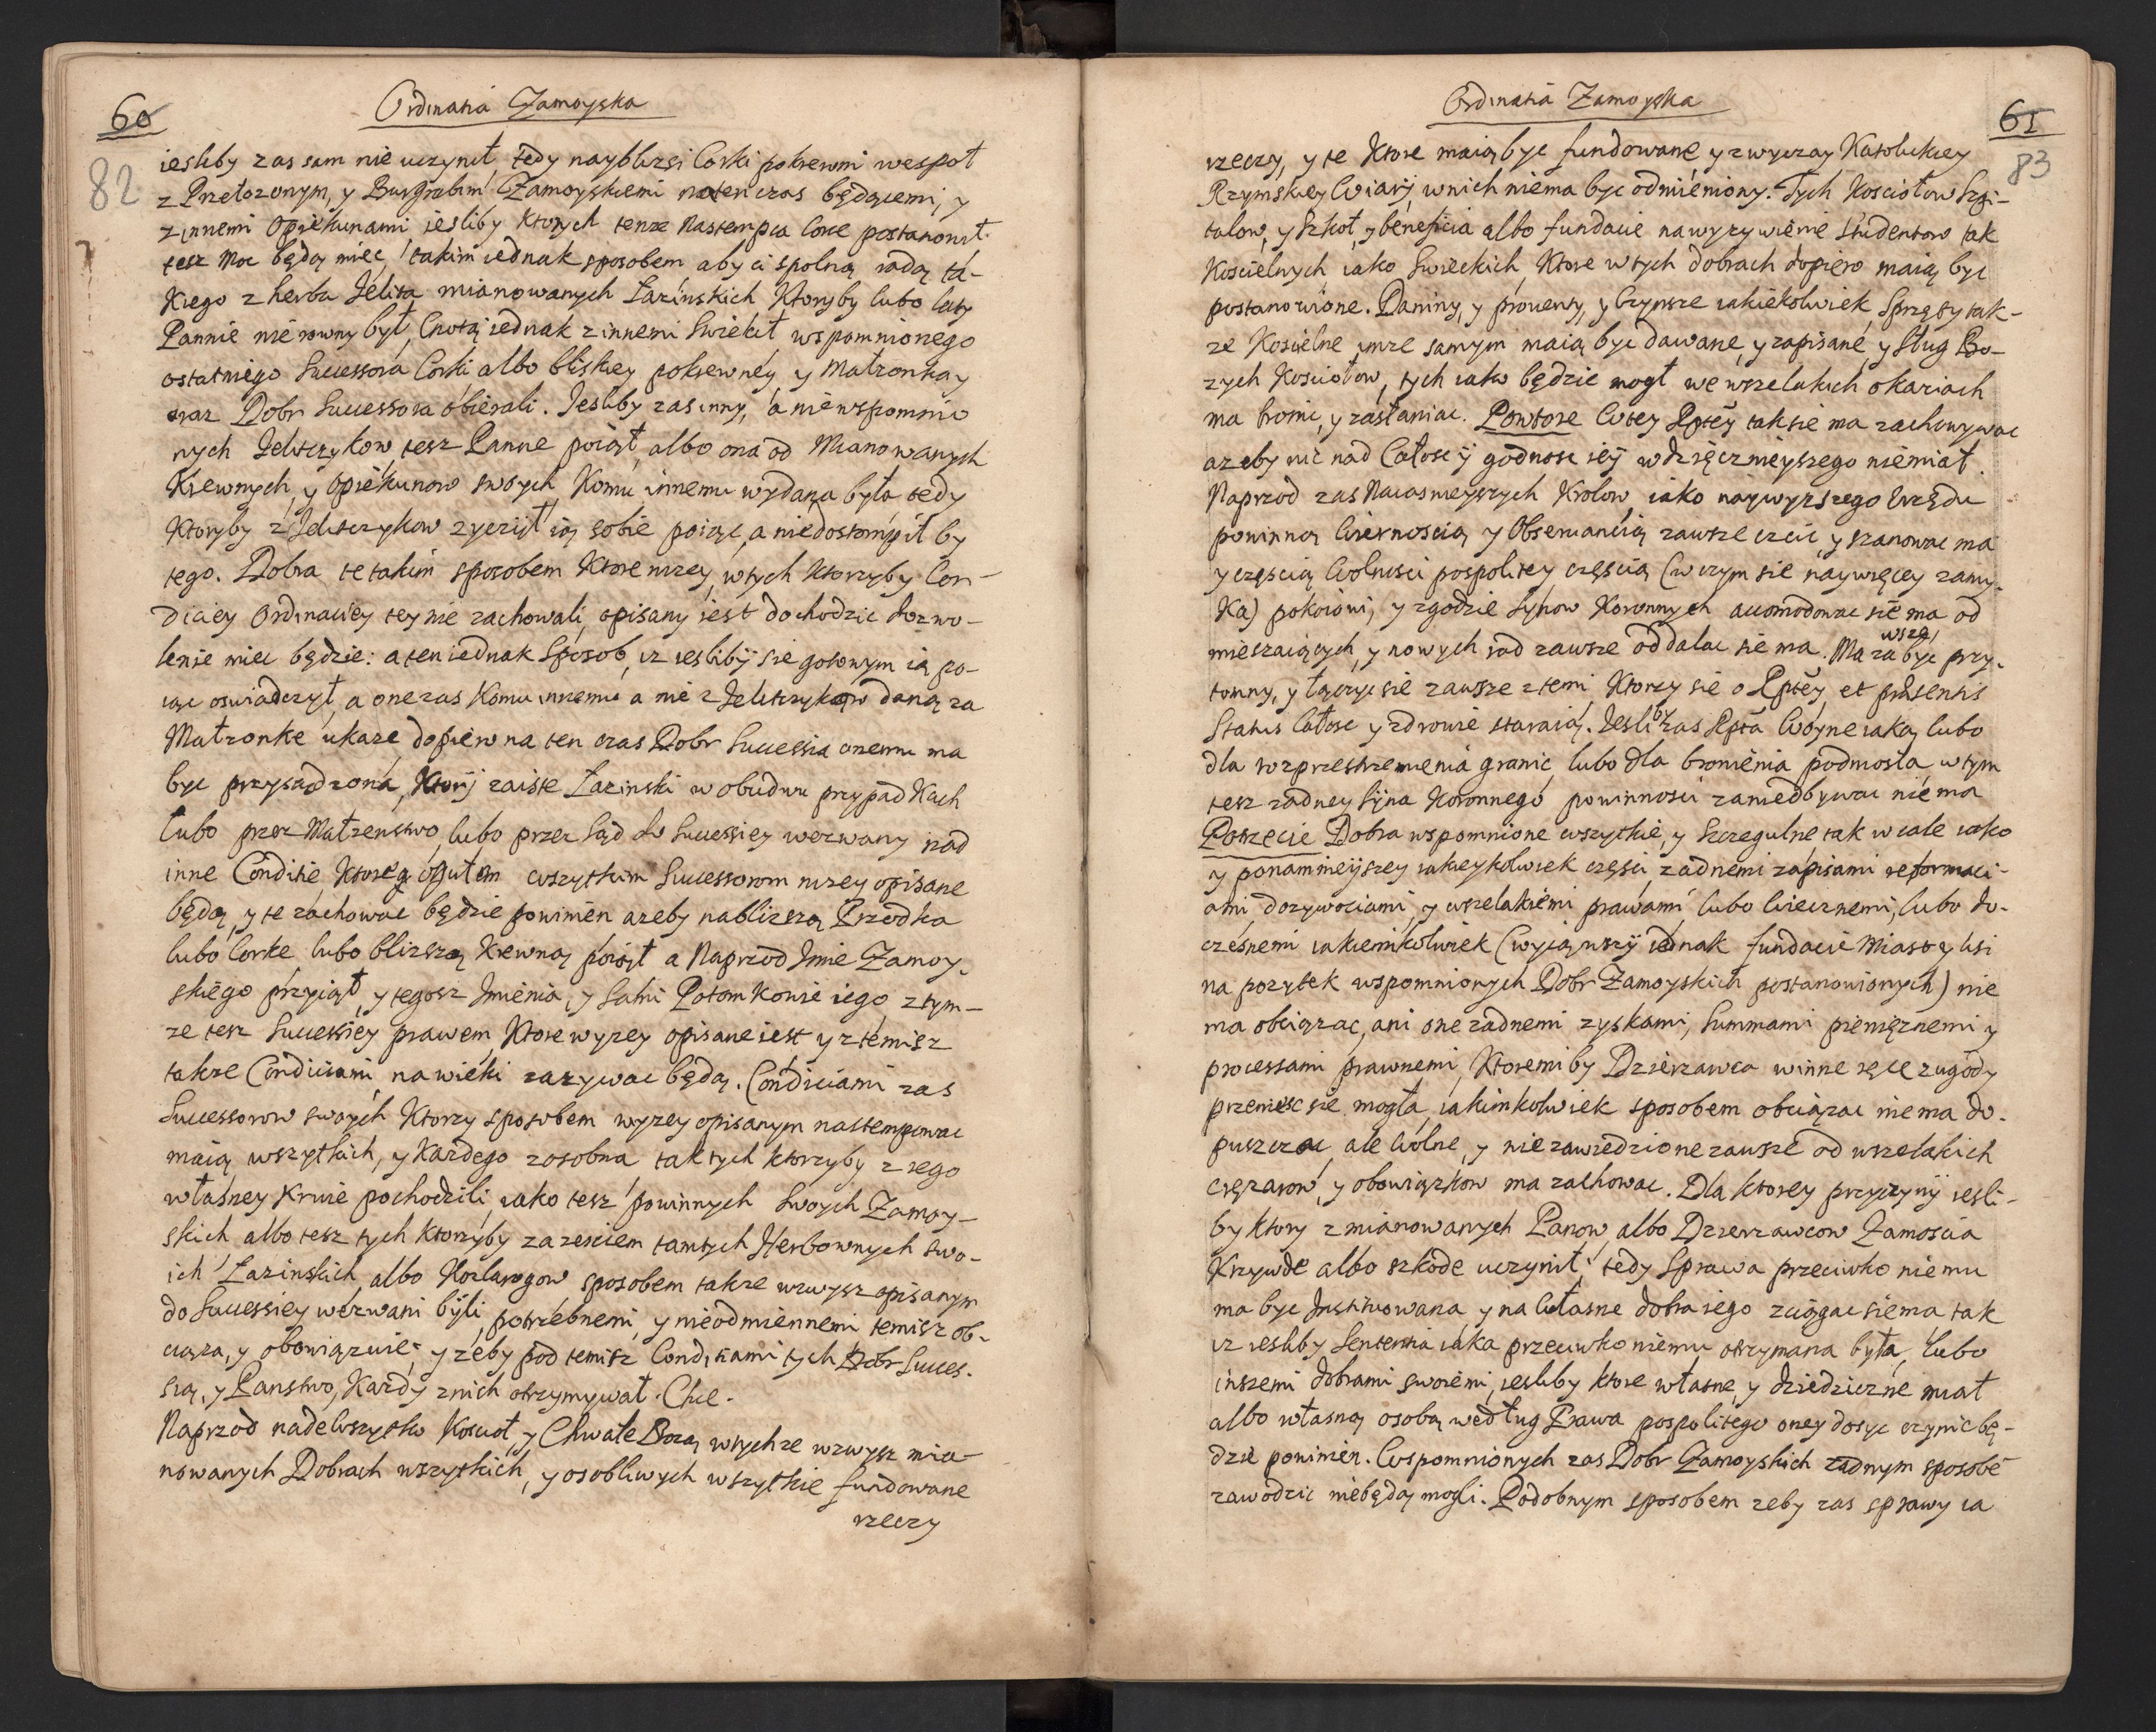 60
Ordinatia Zamoyska
82
iesliby zas sam nie uczynił, tedy nayblizsi Corki pokrewni wespoł
z Przełozonym, y Burgrabim Zamoyskiemi natenczas będącemi, y
z innemi Opiekunami iesliby ktorych tenze Nastempca Corce postanowił
tesz Moc będą miec, takim iednak sposobem aby ci spolną radą ta-
kiego z herbu Jelita mianowanych Łazinskich Ktoryby lubo laty
Pannie nie rowny był, Cnotą iednak z innemi Swiekił wspomnionego
ostatniego Successora Corki albo bliskiey pokrewney y Małzonka y
oraz Dobr Successora obierali. Jesliby zas inny, a nie wspomnio
nych Jelitczykow tesz Panne poiął, albo ona od Mianowanych
Krewnych, y opiekunow swoych, Komu innemu wydana była tedy
Ktoryby z Jelitczykow zyczył ią sobie poiąc, a niedostompił by
tego. Dobra te takim sposobem Ktore nizey, w tych Ktorzyby Con-
diciey Ordinaciey tey nie zachowali, opisany iest dochodzic dozwo-
lenie miec będzie: a ten iednak Sposob, iz iesliby sie gotowym ią po-
iąc oswiadczył, a one zas Komu innemu a nie z Jelitczykow daną za
Małzonke ukaze dopiero na ten czas Dobr Successia onemu ma
byc przysądzona, Ktory zaiste Łazinski w obudwu przypadkach
lubo przez Małzenstwo, lubo przez Sąd do Successiey wezwany nad
inne Conditie, Ktore ogułem wszytkim Successorom nizey opisane
będą, y te zachowac będzie powinien azeby nablizszą Przodka
lubo Corke, lubo blizszą Krewną poiął a Naprzod Jmie Zamoy-
skiego przyiął, y tegosz Jmienia, y Sami Potomkowie iego, z tym-
ze tesz Successiey prawem, Ktore wyzey opisane iest y z temisz
takze Condiciami na wieki zazywac będą. Condiciami zas
Successorow swoych Ktorzy sposobem wyzey opisanym nastempowac
maią wszytkich, y Kazdego zosobna tak tych ktorzyby z iego
własney Krwie pochodzili, iako tesz powinnych Swoych Zamoy-
skich albo tesz tych Ktorzyby za zesciem tamtych Herbownych swo-
ich Łazinskich albo Kozlarogow sposobem takze wzwysz opisanym
do Successiey wezwani byli, potrzebnemi, y nieodmiennemi temisz ob-
ciąza, y obowiązuie; y zeby pod temisz Conditiami tych Dobr Succes-
sią, y Panstwo, Kazdy z nich otrzymywał. Chce.
Naprzod nadewszytko Koscioł, y Chwałe Bozą w tychze wzwysz mia-
nowanych Dobrach wszytkich, y osobliwych wszytkie fundowane
rzeczy
Ordinatia Zamoyska
61
83
rzeczy, y te Ktore maią byc fundowane y zwyczay Katolickiey
Rzymskiey Wiary, w nich niema byc odmieniony. Tych Kosciołow Szpi-
talow, y Szkoł, y beneficia albo fundacie na wyzywienie Studentow tak
Koscielnych iako Swieckich Ktore w tych dobrach dopiero maią byc
postanowione. Daniny, y prowenty, y Czynsze iakiekolwiek, Sprzęty tak-
ze Koscielne imze samym maią byc dawane, y zapisane, y Sług Bo-
zych Kosciołow, tych iako będzie mogł we wszelakich okaziach
ma bronic, y zasłaniac. Powtore Wtey Rptey tak sie ma zachowywac
azeby nic nad Całosc y godnosc iey wdzięcznieyszego niemiał.
Naprzod zas Naiasnieyszych Krolow, iako naywyzszego Urzędu
powinną Wiernoscią y Obserwancią zawsze czcic, y szanowac ma
y częscią Wolnosci pospolitey częscią (w czym sie naywięcey zamy-
Ka) pokoiowi, y zgodzie Synow Koronnych accomodowac sie ma od
mieszaiących, y nowych rad zawsze oddalac sie ma. Ma zawsze byc przy-
tomny, y łączyc sie zawsze z temi Ktorzy sie o Rptey et præsentis
Status Całosc y zdrowie staraią. Jesliby zas Rpta Woyne iaką lubo
dla rozprzestrzenienia granic, lubo dla bronienia podniosła, w tym
tesz zadney Syna Koronnego powinnosci zaniedbywac nie ma
Potrzecie Dobra wspomnione wszytkie, y Szczegulne tak w cale iako
y ponamnieyszey iakieykolwiek częsci zadnemi zapisami reformaci-
ami, dozywociami, y wszelakiemi prawami lubo Wiecznemi, lubo do-
czesnemi iakiemikolwiek (wyiąwszy iednak fundacie Miast y Wsi
na pozytek wspomnionych Dobr Zamoyskich postanowionych) nie
ma obciązac, ani one zadnemi zyskami, Summami pienięznemi y
processami prawnemi, Ktoremi by Dzierzawca w inne ręce z ugody
przeniesc sie mogła, iakimkolwiek sposobem obciązac nie ma do-
puszczac, ale Wolne, y niezawiedzione zawsze od wszelakich
cięzarow, y obowiązkow ma zachowac. Dla ktorey przyczyny iesli-
by ktory z mianowanych Panow, albo Dzierzawcow Zamoscia
Krzywde albo szkode uczynił, tedy Sprawa przeciwko niemu
ma byc Instituowana, y na Własne dobra iego zciągac sie ma tak
iz iesliby Sententia iaka przeciwko niemu otrzymana była, lubo
inszemi dobrami swoiemi, iesliby ktore własne, y dziedziczne miał
albo własną osobą według Prawa pospolitego oney dosyc czynic bę-
dzie powinien. Wspomnionych zas Dobr Zamoyskich zadnym sposobe
zawodzic niebędą mogli. Podobnym sposobem zeby zas sprawy ia